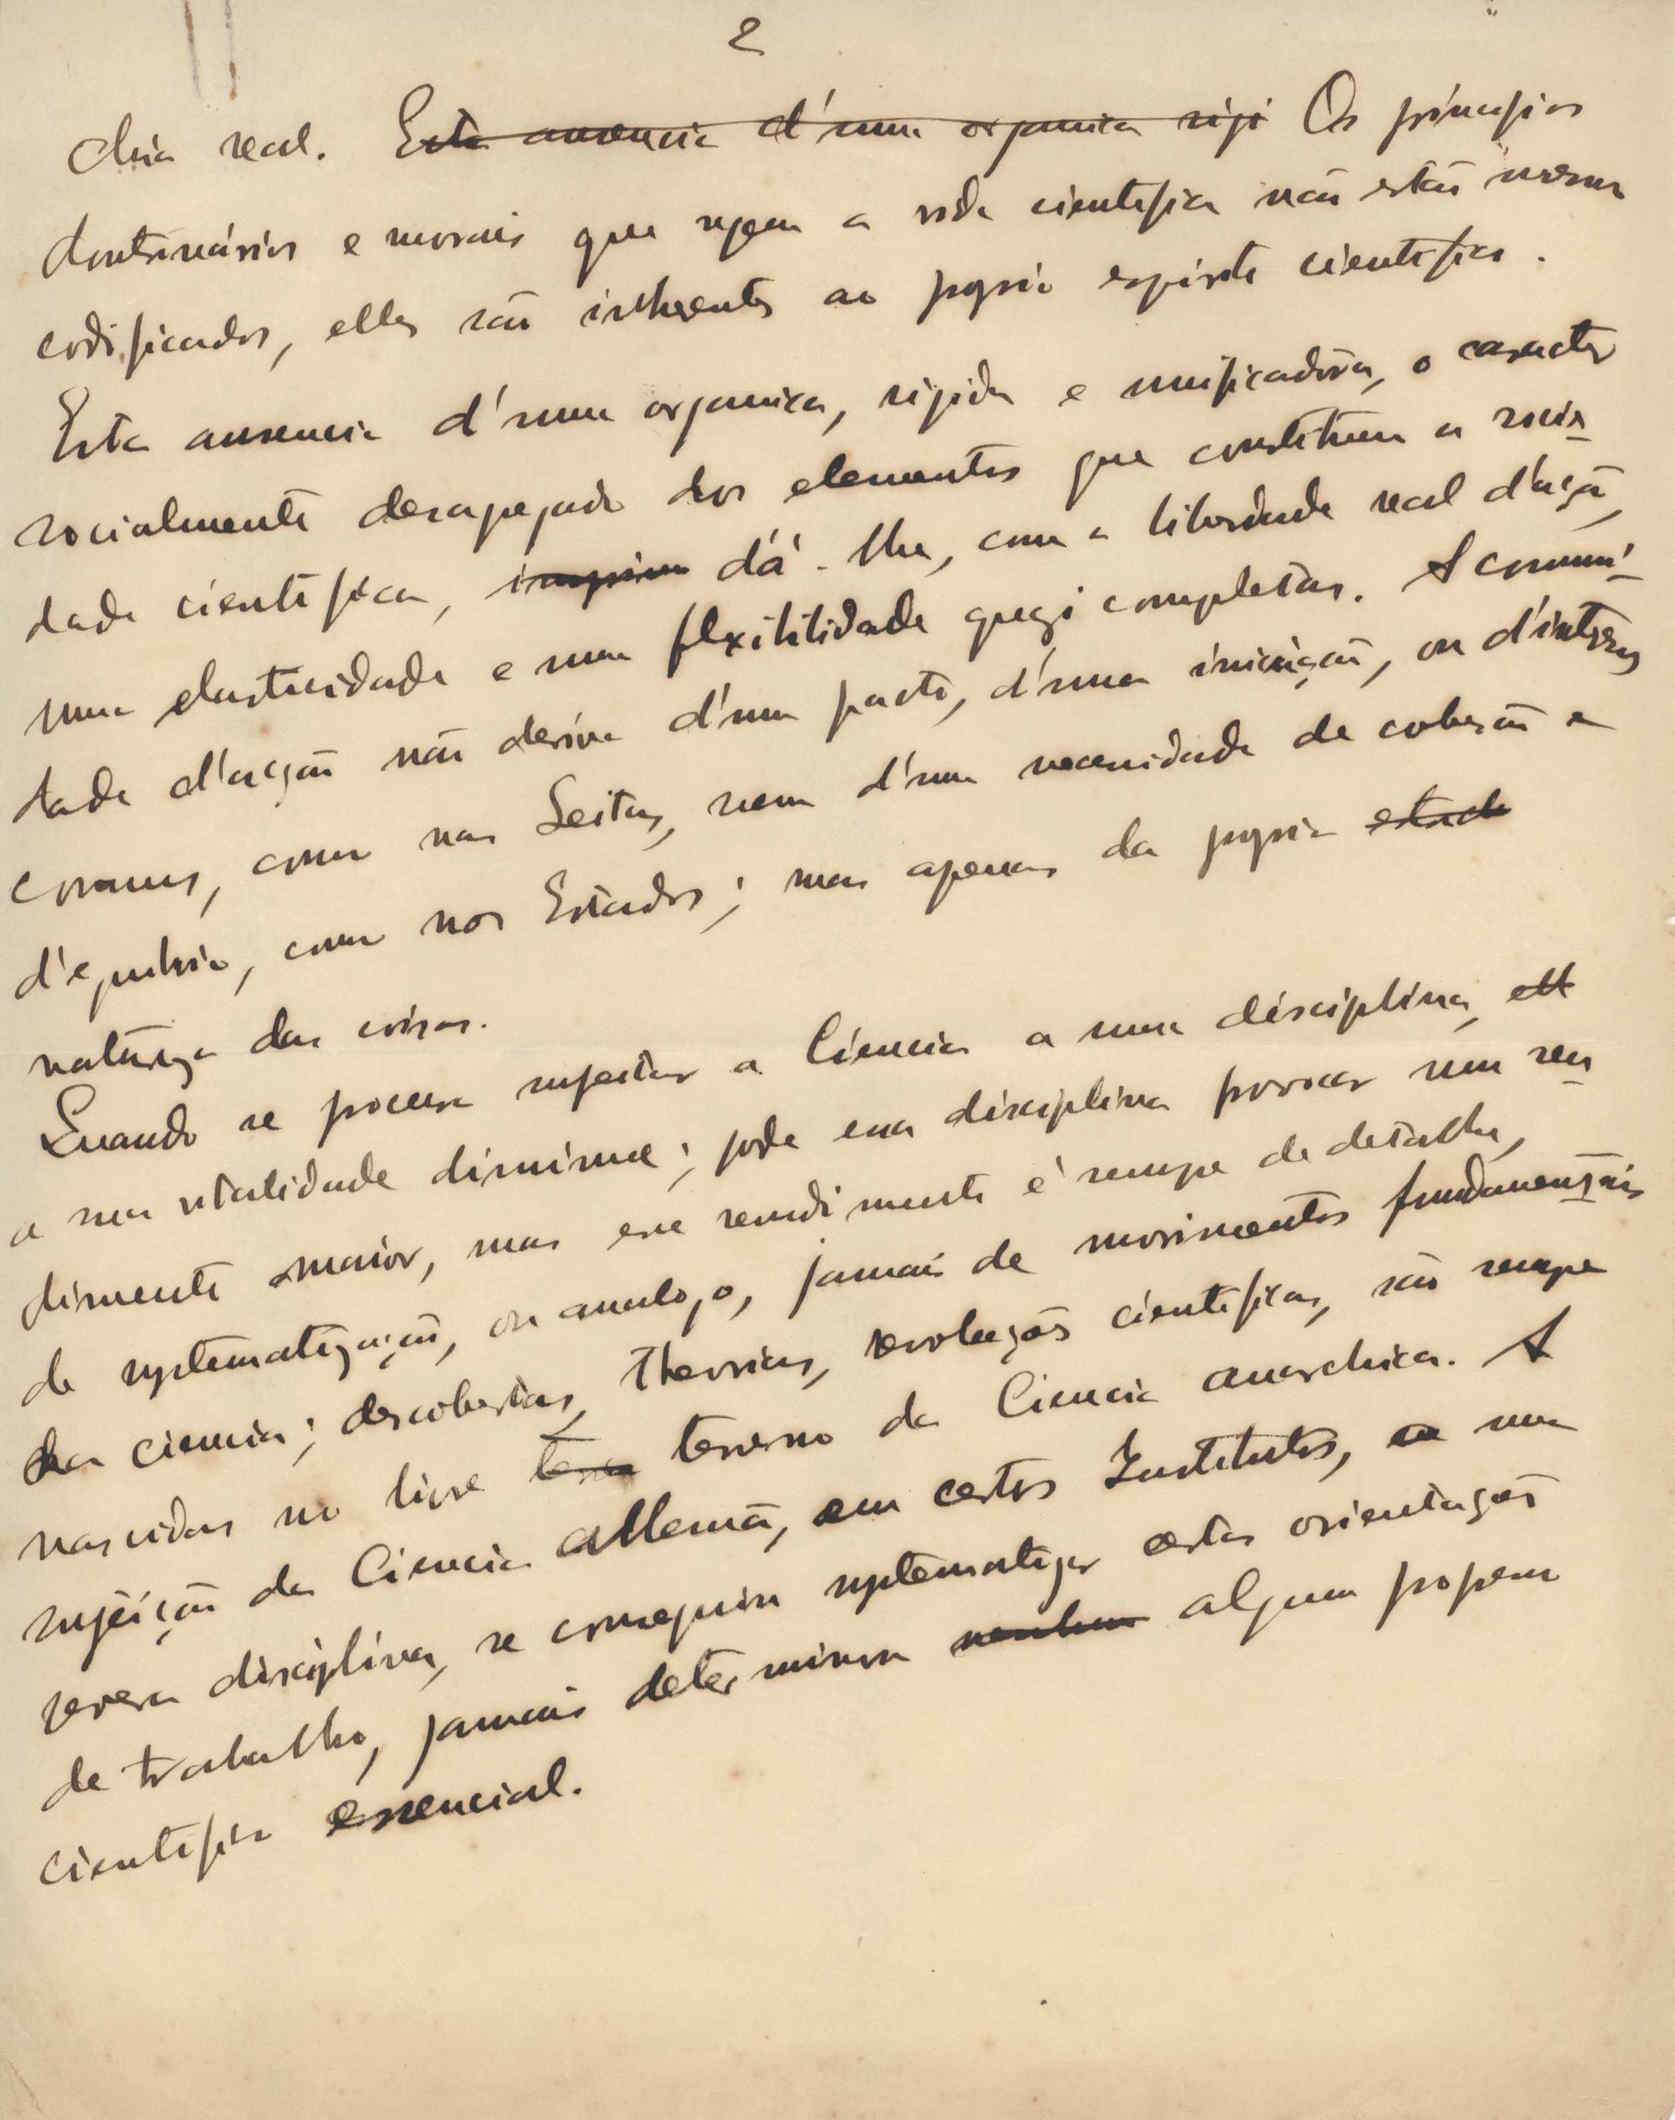 2
chia real. Esta ausencia d'uma organica rigi Os principios
doutrinários e moraes que regem a vida cientifica não estão mesmo
codificados, elles são inherentes ao proprio espirito cientifico.
Esta ausencia d'uma organica, rigida e unificadora, o caracter
socialmente desapegado dos elementos que constituem a socie-
dade cientifica, imprime dá-lhe, com a liberdade real d'acção,
uma elasticidade e uma flexibilidade quazi completas. A comuni-
dade d'acção não deriva d'um pacto, d'uma iniciação, ou d'interesses
comuns, como nas Seitas, nem d'uma necessidade de cohesão e
d'equilibrio, como nos Estados; mas apenas da propria estado
natureza das coisas.
Quando se procura sujeitar a Ciencia a uma disciplina, ell
a sua vitalidade diminue; pode essa disciplina provocar um ren-
dimento maior, mas esse rendimento é sempre de detalhe,
de systematização, ou analogo, jamais de movimentos fundamentais
da ciencia; descobertas, theorias, revoluções cientificas, são sempre
nascidas no livre terre terreno da Ciencia anarchica. A
sujeição da Ciencia allemã, em certos Institutos, a uma
severa disciplina, se conseguiu systematizar certas orientações
de trabalho, jamais determinou nenhum algum progresso
cientifico essencial.